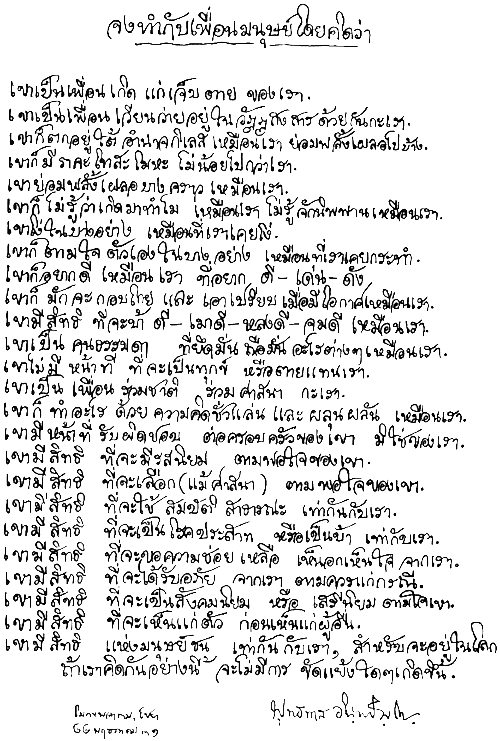 จงทำกับเพื่อนมนุษย์โดยคิดว่า
เขาเป็นเพื่อนเกิด แก่ เจ็บ ตาย ของเรา.
เขาเป็นเพื่อน เวียนว่ายอยู่ใน วัฏฏสงสาร ด้วยกันกะเรา.
เขาก็ตกอยู่ใต้ อำนาจกิเลส เหมือนเรา ย่อมพลั้งเผลอไปบ้าง.
เขาก็มี ราคะ โทสะ โมหะ ไม่น้อยไปกว่าเรา.
เขาย่อมพลั้งเผลอ บางคราว เหมือนเรา.
เขาก็ไม่รู้ว่าเกิดมาทำไม เหมือนเรา ไม่รู้จักนิพพาน เหมือนเรา.
เขาโง่ในบางอย่าง เหมือนที่เราเคยโง่.
เขาก็ตามใจ ตัวเองในบางอย่าง เหมือนที่เราเคยกระทำ.
เขาก็อยากดี เหมือนเรา ที่อยาก ดี - เด่น - ดัง
เขาก็ มักจะ กอบโกย และ เอาเปรียบ เมื่อมีโอกาสเหมือนเรา.
เขามีสิทธิ ที่จะบ้า ดี - เมาดี - หลงดี - จมดี เหมือนเรา.
เขาเป็น คนธรรมดา ที่ยึดมั่น ถือมั่น อะไรต่างๆ เหมือนเรา.
เขาไม่มี หน้าที่ ที่จะเป็นทุกข์ หรือตายแทนเรา.
เขาเป็น เพื่อน ร่วมชาติ ร่วม ศาสนา กะเรา.
เขาก็ ทำอะไร ด้วย ความคิดชั่วแล่น และ ผลุนผลัน เหมือนเรา.
เขามีหน้าที่ รับผิดชอบ ต่อครอบครัวของเขา มิใช่ของเรา.
เขามี สิทธิ ที่จะมีรสนิยม ตามพอใจของเขา.
เขามี สิทธิ ที่จะเลือก (แม้ศาสนา) ตามพอใจของเขา.
เขามี สิทธิ ที่จะใช้ สมบัติ สาธารณะ เท่ากันกับเรา.
เขามี สิทธิ ที่จะเป็นโรคประสาท หรือเป็นบ้า เท่ากับเรา.
เขามี สิทธิ ที่จะขอความช่วยเหลือ เห็นอกเห็นใจ จากเรา.
เขามี สิทธิ ที่จะได้รับอภัย จากเรา ตามควรแก่กรณี.
เขามี สิทธิ ที่จะเป็นสังคมนิยม หรือ เสรีนิยม ตามใจเขา.
เขามี สิทธิ ที่จะเห็นแก่ตัว ก่อนเห็นแก่ผู้อื่น.
เขามี สิทธิ แห่งมนุษย์ชน เท่ากันกับเรา, สำหรับจะอยู่ในโลก
ถ้าเราคิดกันอย่างนี้ จะไม่มีการ ขัดแย้งใดๆเกิดขึ้น.
โมกขพลาราม, ไชยา
พุทธทาส อินฺทปญฺโญ
๒๒ พฤษภาคม ๓๑